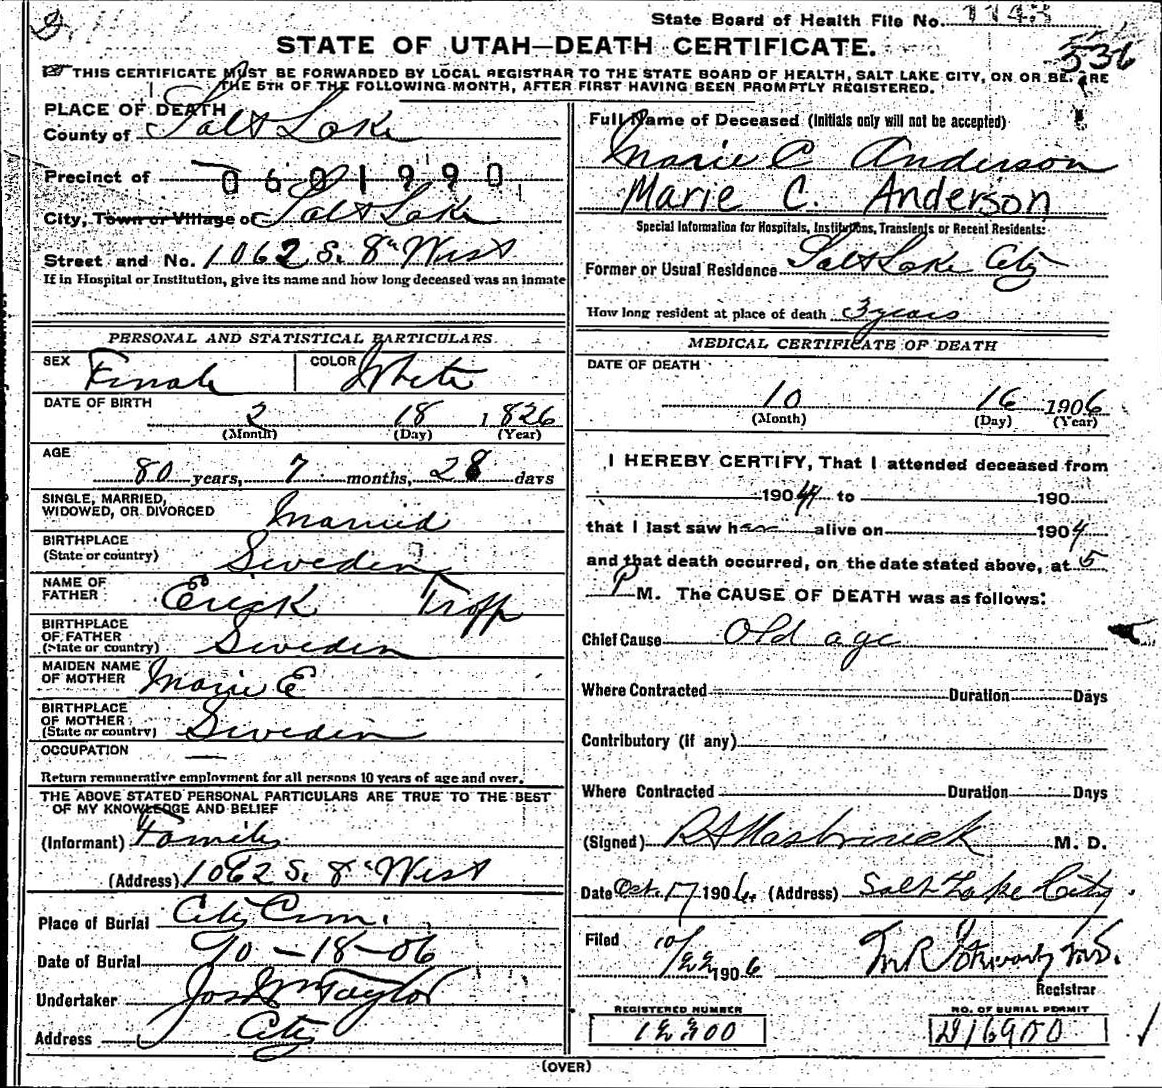 State Board of Health File No. 1143
STATE OF UTAH—DEATH CERTIFICATE.
536
THIS CERTIFICATE MUST BE FORWARDED BY LOCAL REGISTRAR TO THE STATE BOARD OF HEALTH, SALT LAKE CITY, ON OR BEFORE
THE 5TH OF THE FOLLOWING MONTH, AFTER FIRST HAVING BEEN PROMPTLY REGISTERED.
PLACE OF DEATH
County of Salt Lake
Precinct of 0601990
City, Town or Village of Salt Lake
Street and No. 1062 S. 8th West
If in Hospital or Institution, give its name and how long deceased was an inmate
PERSONAL AND STATISTICAL PARTICULARS.
SEX Female COLOR White
DATE OF BIRTH
2 18 1826
(Month) (Day) (Year)
AGE
80 years, 7 months, 28 days
SINGLE, MARRIED,
WIDOWED, OR DIVORCED Married
BIRTHPLACE
(State or country) Sweden
NAME OF
FATHER Erick Tropp
BIRTHPLACE
OF FATHER
(State or country) Sweden
MAIDEN NAME
OF MOTHER Marie E
BIRTHPLACE
OF MOTHER
(State or country) Sweden
OCCUPATION —
Return remunerative employment for all persons 10 years of age and over.
THE ABOVE STATED PERSONAL PARTICULARS ARE TRUE TO THE BEST
OF MY KNOWLEDGE AND BELIEF
(Informant) Family
(Address) 1062 S. 8th West
Place of Burial City Cem.
Date of Burial 10-18-06
Undertaker Jos Wm Taylor
Address City
Full Name of Deceased (Initials only will not be accepted)
Marie C Anderson
Marie C. Anderson
Special Information for Hospitals, Institutions, Transients or Recent Residents:
Former or Usual Residence Salt Lake City
How long resident at place of death 3 years
MEDICAL CERTIFICATE OF DEATH
DATE OF DEATH
10 16 1906
(Month) (Day) (Year)
I HEREBY CERTIFY, That I attended deceased from
1904 to 190
that I last saw her alive on 1904
and that death occurred, on the date stated above, at 5
P M. The CAUSE OF DEATH was as follows:
Chief Cause Old age
Where Contracted Duration Days
Contributory (if any)
Where Contracted Duration Days
(Signed) R A Hasbrouck M. D.
Date Oct. 17 1906. (Address) Salt Lake City.
Filed 10/22 1906
Registrar
REGISTERED NUMBER
12200
NO. OF BURIAL PERMIT
D16900
(OVER)